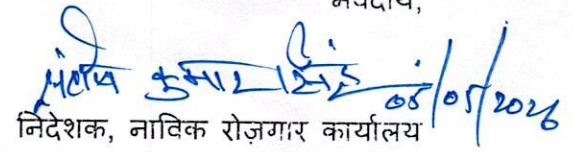 भवदीय,
संतोष कुमार सिंह
05/05/2026
निदेशक, नाविक रोज़गार कार्यालय